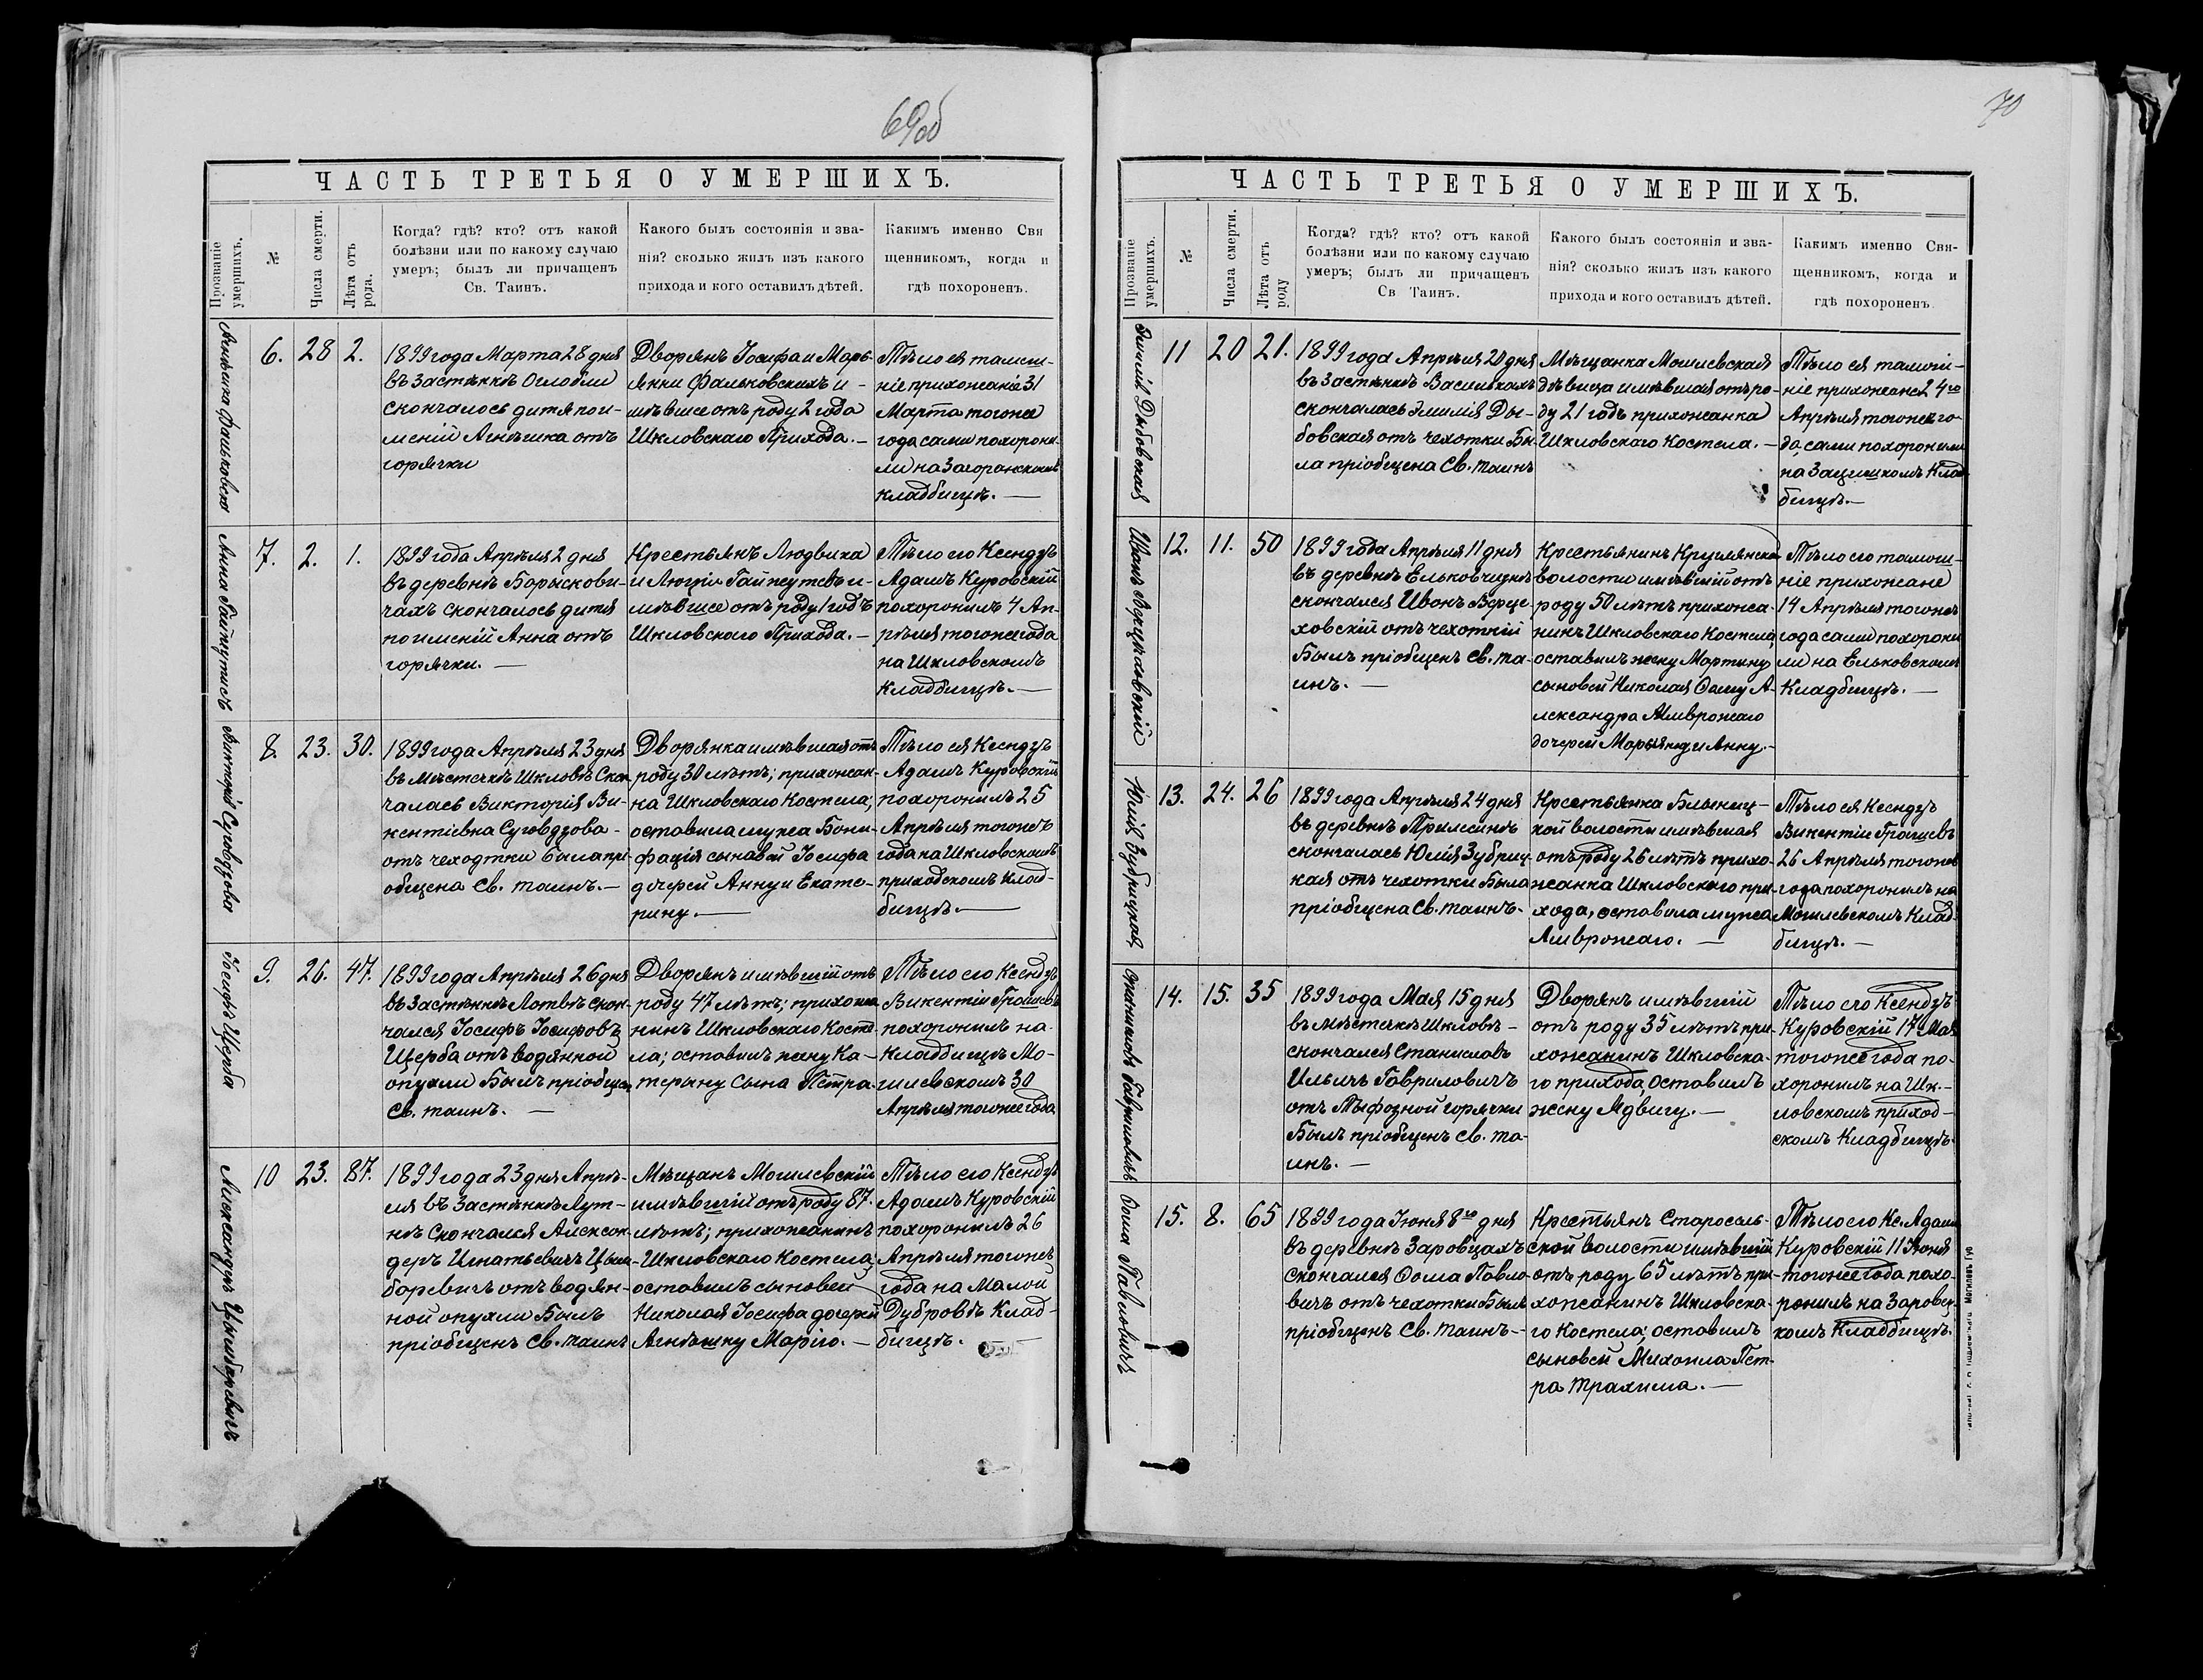 69об
ЧАСТЬ ТРЕТЬЯ О УМЕРШИХЪ.
Прозваніе умершихъ.
№
Числа смерти.
Лѣта отъ рода.
Когда? гдѣ? кто? отъ какой
болѣзни или по какому случаю
умеръ; былъ ли причащенъ
Св. Таинъ.
Какого былъ состоянія и зва-
нія? сколько жилъ изъ какого
прихода и кого оставилъ дѣтей.
Какимъ именно Свя
щенникомъ, когда и
гдѣ похороненъ.
Агнѣшка Фальковска
6. 28 2.
1899 года Марта 28 дня
въ Застѣнкѣ Оглобли
скончалось дитя по и-
меній Агнѣшка отъ
горячки
Дворянъ Іосифа и Марь-
янни Фальковскихъ и-
мѣвшее отъ роду 2 года
Шкловскаго Прихода.—
Тѣло ея тамош-
ніе прихожаніе 31
Марта тогоже
года сами похорони-
ли на Загоранскомъ
кладбищѣ.—
Анна Гайгутись
7. 2. 1.
1899 года Апрѣля 2 дня
въ деревнѣ Барыскови-
чахъ скончалось дитя
по именій Анна отъ
горячки.—
Крестьянъ Людвика
и Люціи Гайгутевъ и-
мѣвшее отъ роду 1 годъ
Шкловскаго Прихода.—
Тѣло его Ксендзъ
Адамъ Куровскій
похоронилъ 4 Ап-
рѣля тогоже года
на Шкловскомъ
Кладбищѣ.—
Викторія Суговдзова
8. 23. 30.
1899 года Апрѣля 23 дня
въ мѣстечкѣ Шкловѣ Скон
чалась Викторія Ви-
нентіевна Суговдзова-
отъ чеходтки была прі-
общена Св. таинъ.—
Дворянка имѣвшая отъ
роду 30 лѣтъ; прихожан-
ка Шкловскаго Костела;
оставила мужа Бони-
фація сынавей Іосифа
дочерей Анну и Екате-
рину.—
Тѣло ея Ксендзъ
Адамъ Куровскій
похоронилъ 25
Апрѣля тогожъ
года на Шкловскомъ
приходскомъ клад-
бищѣ.—
Іосифъ Щерба
9. 26. 47.
1899 года Апрѣля 26 дня
въ Застѣнкѣ Лотвѣ скон-
чался Іосифъ Іосифовъ
Щерба отъ водянной
опухли Былъ пріобщен
Св. таинъ.—
Дворянъ имѣвшій отъ
роду 47 лѣтъ; прихожа
нинъ Шкловскаго Косте-
ла; оставилъ жену Ка-
терыну сына Петра.
Тѣло его Ксендзъ
Викентіи Грошевъ
похоронилъ на-
Кладбищѣ Мо-
гилевскомъ 30
Апрѣля тогоже года
Александръ Цымберевичъ
10 23. 87.
1899 года 23 дня Апрѣ-
ля въ Застѣнкѣ Лут-
нѣ Скончался Алексан
деръ Игнатьевичъ Цым-
баревичъ отъ водян-
ной опухли Былъ
пріобщенъ Св. таинъ
Мѣщанъ Могилевскій
имѣвшій отъ роду 87.
лѣтъ; прихожанинъ
Шкловскаго Костела;
оставилъ сыновей
Николая Іосифа дочерей
Агнѣшку Марію.—
Тѣло его Ксендзъ
Адамъ Куровскій
похоронилъ 26
Апрѣля тогожъ
года на Малой
Дубровѣ Клад-
бищѣ.
70
ЧАСТЬ ТРЕТЬЯ О УМЕРШИХЪ.
Прозваніе умершихъ.
№
Числа смерти.
Лѣта отъ роду
Когда? гдѣ? кто? отъ какой
болѣзни или по какому случаю
умеръ; былъ ли причащенъ
Св Таинъ.
Какого былъ состоянія и зва-
нія? сколько жилъ изъ какого
прихода и кого оставилъ дѣтей.
Какимъ именно Свя-
щенникомъ, когда и
гдѣ похороненъ
Эмилія Дыбовская
11 20 21.
1899 года Апрѣля 20 дня
въ Застѣнкѣ Василькахъ
скончалась Эмилія Ды-
бовская отъ чехотки Бы-
ла пріобщена Св. таинъ
Мѣщанка Могилевская
дѣвица имѣвшая отъ ро-
ду 21 годъ прихожанка
Шкловскаго Костела.—
Тѣло ея тамош-
ніе прихожане 24го
Апрѣля тогоже го-
да, сами похоронили
на Защишкомъ Клад-
бищѣ.—
Иванъ Верцеховскій
12. 11. 50
1899 года Апрѣля 11 дня
въ деревнѣ Ельковчизнѣ
скончался Иванъ Верце-
ховскій отъ чехоткій
Былъ пріобщенъ Св. та-
инъ.—
Крестьянинъ Круглянской
волости имѣвшій отъ
роду 50 лѣтъ прихожа-
нинъ Шкловскаго Костела,
оставилъ жену Мартину
сыновей Николая Фаму А-
лександра Амврожаго
дочерей Марьяну и Анну.—
Тѣло его тамош-
ніе прихожане
14 Апрѣля тогожъ
года сами похорони
ли на Ельковскомъ
Кладбищѣ.—
Юлія Зубрицкая
13. 24. 26
1899 года Апрѣля 24 дня
въ деревнѣ Прилесинѣ
скончалась Юлія Зубриц-
кая отъ чехотки Была
пріобщена Св. таинъ.
Крестьянка Бѣлыниц-
кой волости имѣвшая
отъ роду 26 лѣтъ прихо-
жанка Шкловскаго при-
хода, оставила мужа
Амврожаго.—
Тѣло ея Ксендзъ
Викентіи Грошевъ
26 Апрѣля тогожъ
года похоронилъ на
Могилевскомъ Клад-
бищѣ.—
Станиславъ Гавриловичъ
14. 15. 35
1899 года Мая 15 дня
въ мѣстечкѣ Шкловѣ-
скончался Станиславъ
Ильичъ Гавриловичъ
отъ Тыфозной горячки
Былъ пріобщенъ Св. та-
инъ.—
Дворянъ имѣвшій
отъ роду 35 лѣтъ при-
хожанинъ Шкловска-
го прихода оставилъ
жену Ядвигу.—
Тѣло его Ксендзъ
Куровскій 17 Мая
тогоже года по-
хоронилъ на Шк-
ловскомъ приход-
скомъ Кладбищѣ.
Фома Павловичъ
15. 8. 65
1899 года Іюня 8го дня
въ деревнѣ Заровцахъ
скончался Фома Павло-
вичъ отъ чехотки Былъ
пріобщенъ Св. таинъ-
Крестьянъ Старосель-
ской волости имѣвшій
отъ роду 65 лѣтъ при-
хожанинъ Шкловска-
го Костела; оставилъ
сыновей Михаила Пет-
ра Трахима.—
Тѣло его Кс. Адам
Куровскій 11 Іюня
тогоже года похо-
ронилъ на Заровец-
комъ Кладбищѣ.